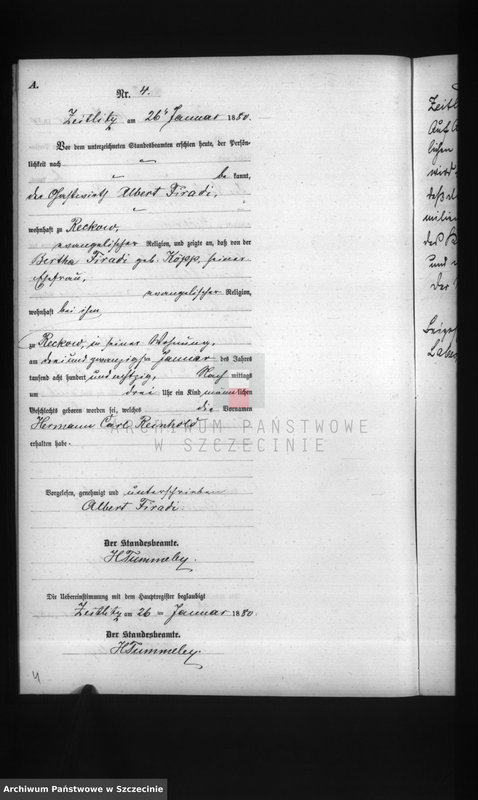 A.
Nr. 4.
Zeitlitz am 26t Januar 1880.
Vor dem unterzeichneten Standesbeamten erschien heute, der Persön-
lichkeit nach
be kannt,
der Gastwirth Albert Firadi,
wohnhaft zu Reckow,
evangelischer Religion, und zeigte an, daß von der
Bertha Firadi geb. Köpp, seiner
Ehefrau,
evangelischer Religion,
wohnhaft bei ihm
zu Reckow, in seiner Wohnung,
am drei und zwanzigsten Januar des Jahres
tausend acht hundert und achtzig, Nach mittags
um drei Uhr ein Kind männlichen
Geschlechts geboren worden sei, welches die Vornamen
Hermann Carl Reinhold
erhalten habe.
Vorgelesen, genehmigt und unterschrieben
Albert Firadi.
Der Standesbeamte.
H Tummeley.
Die Uebereinstimmung mit dem Hauptregister beglaubigt
Zeitlitz am 26 ten Januar 1880.
Der Standesbeamte.
H Tummeley.
4
Zeitl
Auf A
lichen
wird
daß
milien
des
und
Der
Labe
ARCHIWUM PAŃSTWOWE
W SZCZECINIE
Archiwum Państwowe w Szczecinie